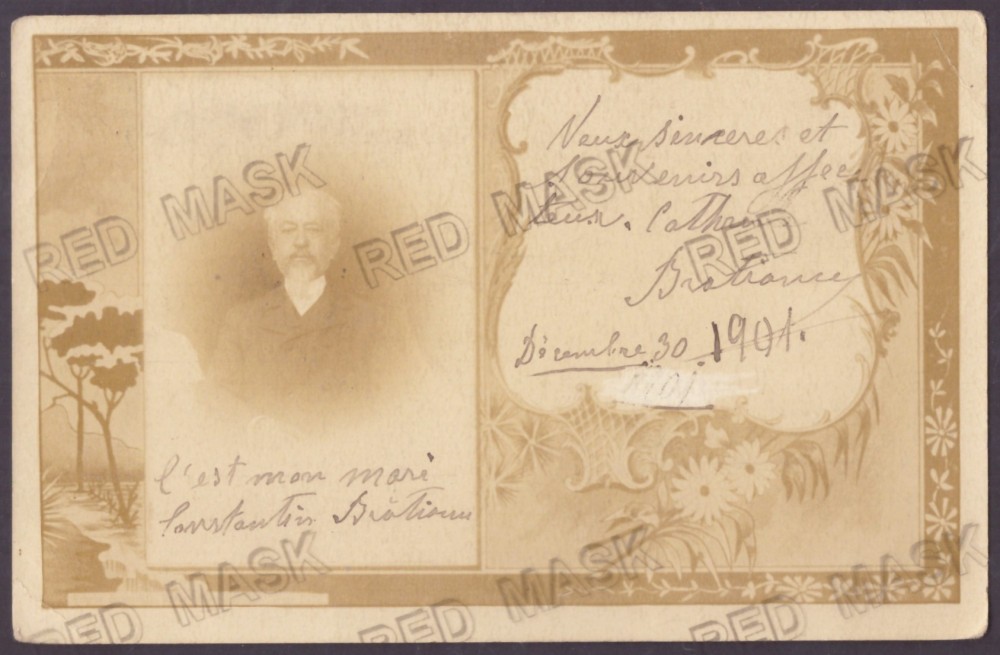 Veux sinceres et
souvenirs affec
teux. Cathe
Bratianu
Décembre 30 1901.
1901
C'est mon mari
Constantin Bratianu
RED MASK
RED MASK
RED MASK
RED MASK
RED MASK
RED MASK
RED MASK
RED MASK
RED MASK
RED MASK